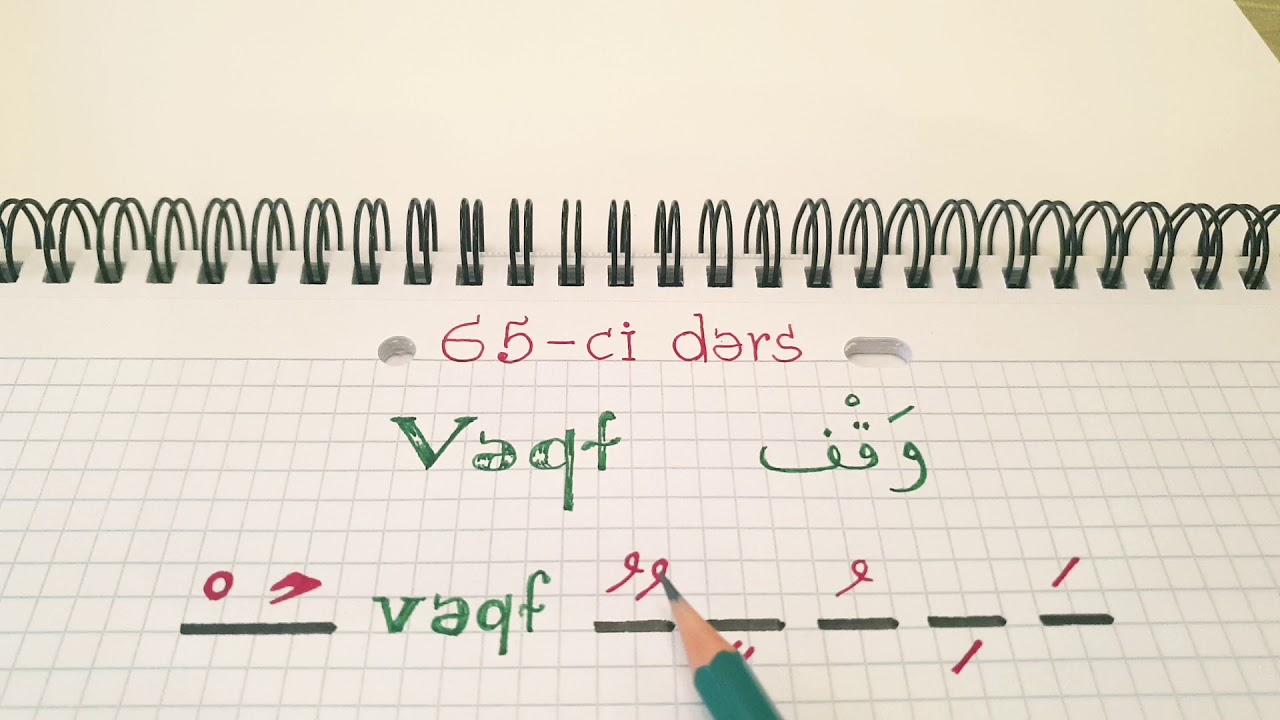 65-ci dərs
Vəqf وَقْف
vəqf